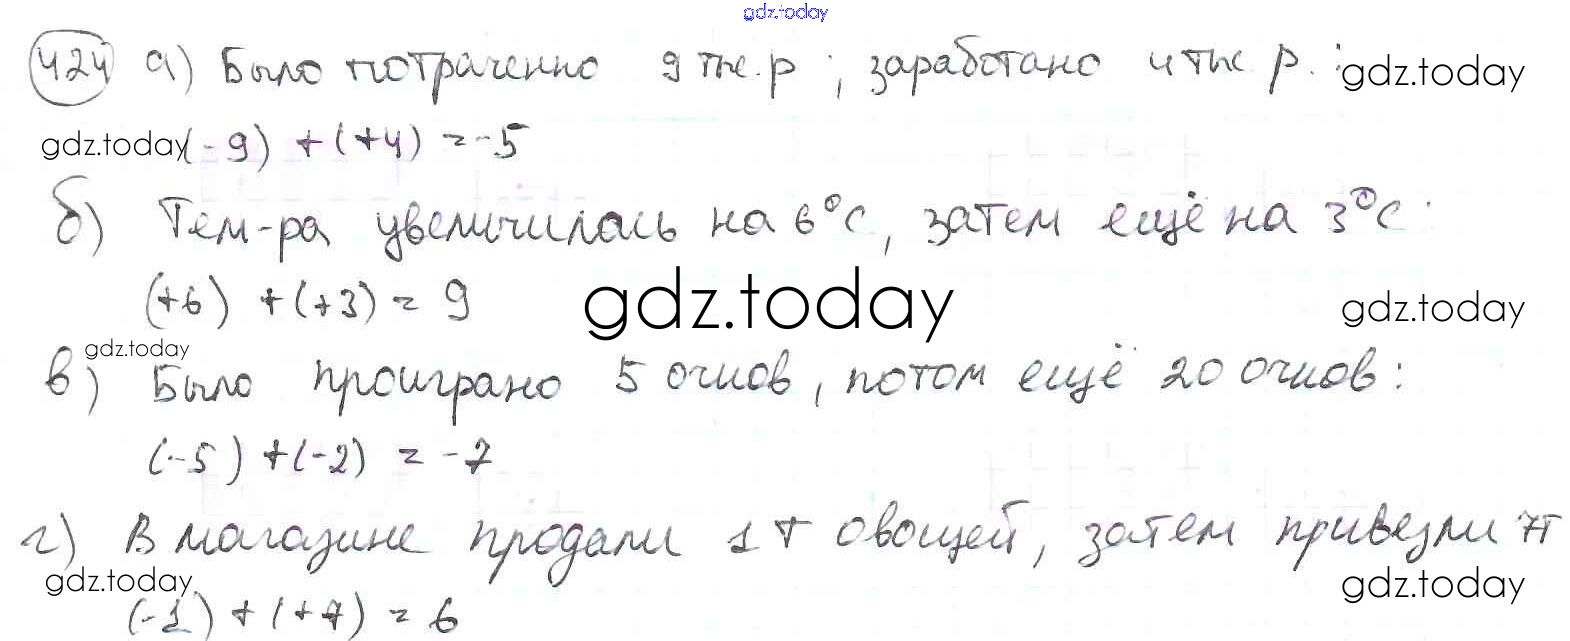 gdz.today
424 а) Было потраченно 9 тыс. р ; заработано 4 тыс. р. : gdz.today
gdz.today (-9) + (+4) = -5
б) Тем-ра увеличилась на 6°С, затем ещё на 3°С :
(+6) + (+3) = 9
gdz.today gdz.today
gdz.today
в) Было проиграно 5 очков, потом ещё 20 очков :
(-5) + (-2) = -7
г) В магазине продали 1 т овощей, затем привезли 7т
gdz.today gdz.today
(-1) + (+7) = 6